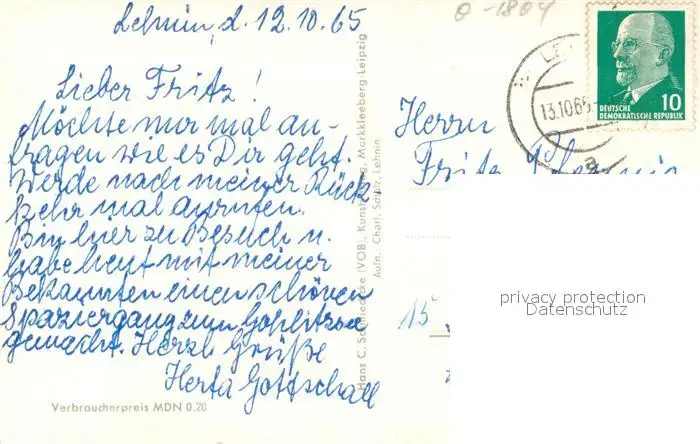 Lehnin d. 12.10.65
Lieber Fritz!
Möchte nur mal an-
fragen wie es Dir geht.
Werde nach meiner Rück-
kehr mal anrufen.
Bin hier zu Besuch u.
habe heut mit meiner
Bekannten einen schönen
Spaziergang zum Gohlitzsee
gemacht. Herzl. Grüße
Herta Gottschall
Verbraucherpreis MDN 0.20
Hans C. Schmiedicke (VOB), Kunstverlag, Markkleeberg-Leipzig
Aufn.: Charl. Scholz, Lehnin
0-1804
13.10.65
a
10
DEUTSCHE
DEMOKRATISCHE REPUBLIK
Herrn
Fritz
15
privacy protection
Datenschutz